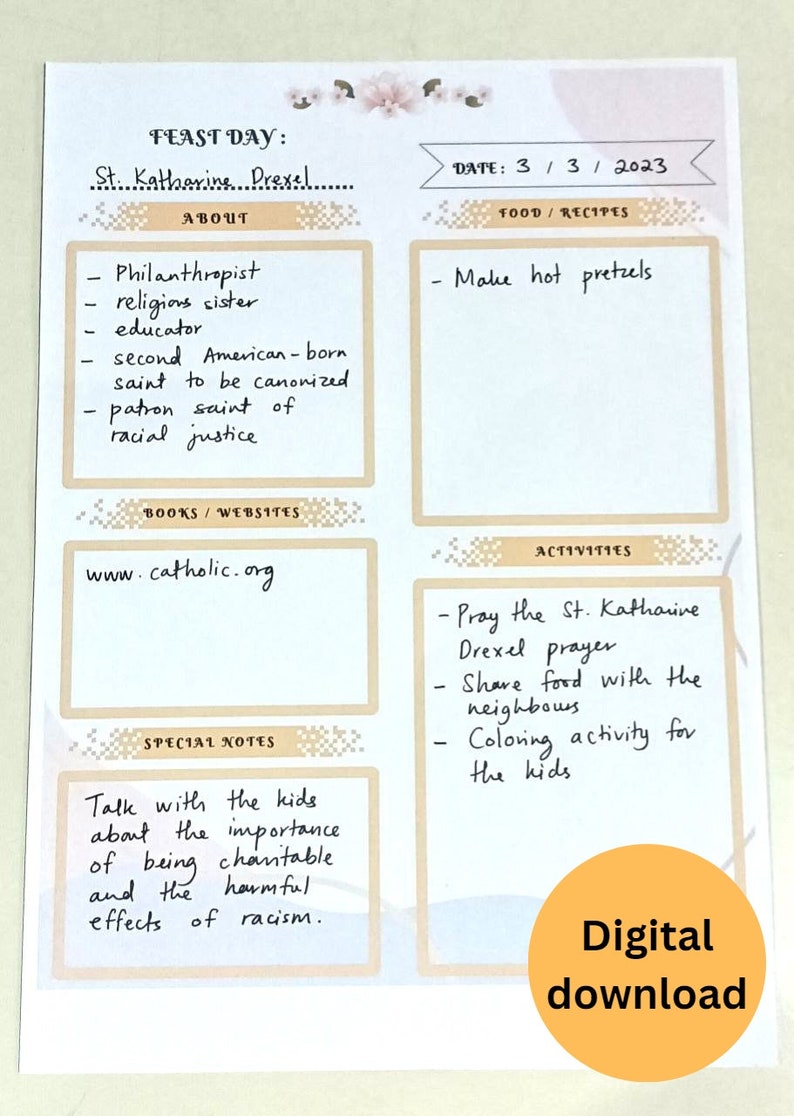 FEAST DAY:
St. Katharine Drexel
DATE: 3 / 3 / 2023
ABOUT
- Philanthropist
- religious sister
- educator
- second American-born
saint to be canonized
- patron saint of
racial justice
BOOKS / WEBSITES
www.catholic.org
SPECIAL NOTES
Talk with the kids
about the importance
of being charitable
and the harmful
effects of racism.
FOOD / RECIPES
- Make hot pretzels
ACTIVITIES
- Pray the St. Katharine
Drexel prayer
- Share food with the
neighbours
- Coloring activity for
the kids
Digital
download